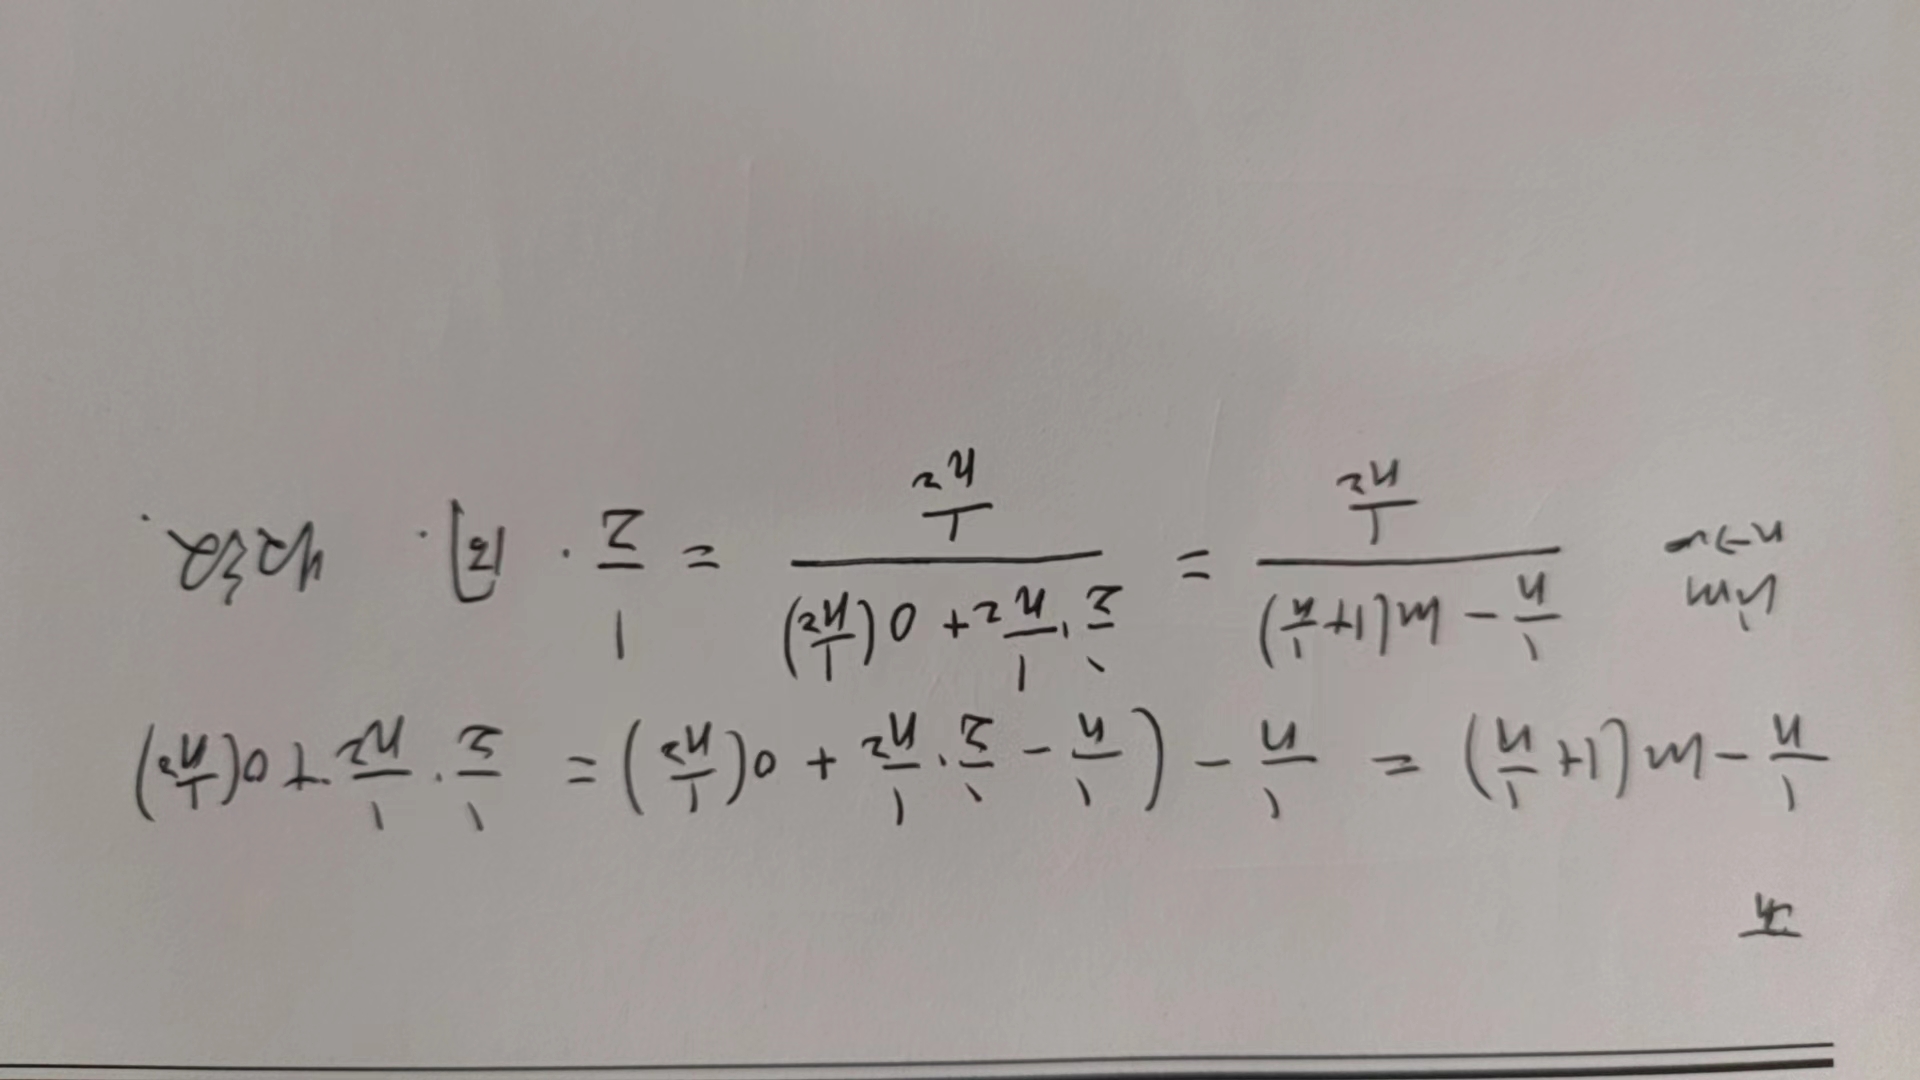 1/n - ln(1+1/n) = 1/n - (1/n - 1/2·1/n² + o(1/n²)) = 1/2·1/n² + o(1/n²)
lim n→∞ (1/n - ln(1+1/n))/(1/n²) = (1/2·1/n² + o(1/n²))/(1/n²) = 1/2. 同. 收敛.